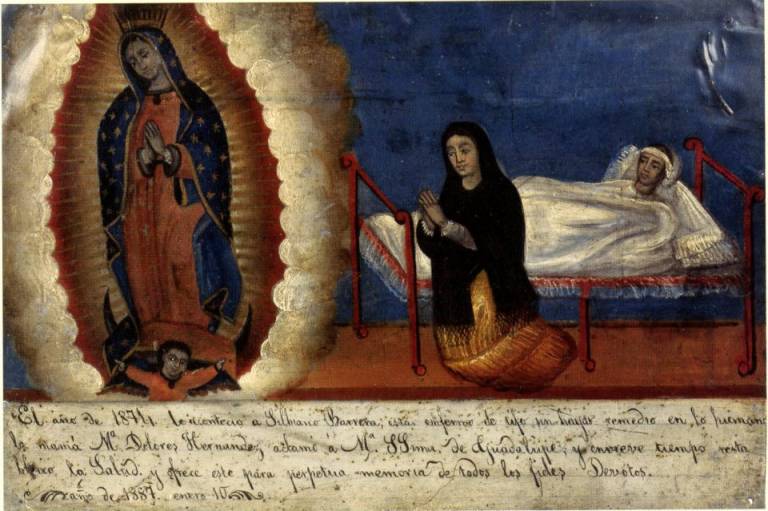 El año de 1874 le acontecio a Silbiano Barrera, estar enfermo de tifo no hayar remedio en lo humano
la mamá Mª Dolores Hernandez, aclamó á Mª SSma. de Guadalupe, y en breve tiempo resta
blecio la Salud. y ofrece este para perpetua memoria de todos los fieles Devotos.
año de 1887. enero 10